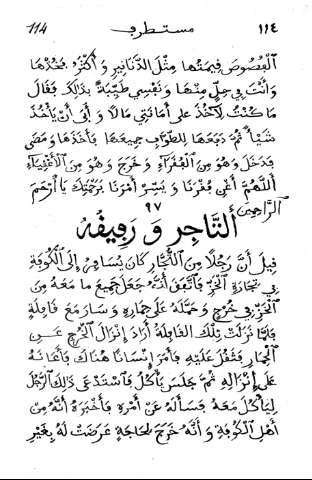 ١١٤ مستطرف 114
الْفُصُوصَ فِيمَتُهَا مِثْلُ الدَّنَانِيرِ وَأَكْثَرُ فَخُذْهَا
وَأَنْتَ فِي حِلٍّ مِنْهَا وَنَفْسِي طَيِّبَةٌ بِذَلِكَ فَقَالَ
مَا كُنْتُ لِآخُذَ عَلَى أَمَانَتِي مَالًا وَأَبَى أَنْ يَأْخُذَ
شَيْأً ثُمَّ دَفَعَهَا لِلطَّوَّافِ جَمِيعَهَا فَأَخَذَهَا وَمَضَى
فَدَخَلَ وَهُوَ مِنَ الْفُقَرَاءِ وَخَرَجَ وَهُوَ مِنَ الْأَغْنِيَاءِ
اللَّهُمَّ أَغْنِ فَقْرَنَا وَيَسِّرْ أَمْرَنَا بِرَحْمَتِكَ يَا أَرْحَمَ
الرَّاحِمِينَ
٩٧
التَّاجِرُ وَرَفِيقُهُ
قِيلَ أَنَّ رَجُلًا مِنَ التُّجَّارِ كَانَ يُسَافِرُ إِلَى الْكُوفَةِ
فِي تِجَارَةِ الْخَزِّ فَاتَّفَقَ أَنَّهُ جَعَلَ جَمِيعَ مَا مَعَهُ مِنَ
الْخَزِّ فِي خُرْجٍ وَحَمَلَهُ عَلَى حِمَارِهِ وَسَارَ مَعَ قَافِلَةٍ
فَلَمَّا نَزَلَتْ تِلْكَ الْقَافِلَةُ أَرَادَ إِنْزَالَ الْخُرْجِ عَنِ
الْحِمَارِ فَثَقُلَ عَلَيْهِ فَأَمَرَ إِنْسَانًا هُنَاكَ فَأَعَانَهُ
عَلَى إِنْزَالِهِ ثُمَّ جَلَسَ يَأْكُلُ فَاسْتَدْعَى ذَلِكَ الرَّجُلَ
لِيَأْكُلَ مَعَهُ فَسَأَلَهُ عَنْ أَمْرِهِ فَأَخْبَرَهُ أَنَّهُ مِنْ
أَهْلِ الْكُوفَةِ وَأَنَّهُ خَرَجَ لِحَاجَةٍ عَرَضَتْ لَهُ بِغَيْرِ